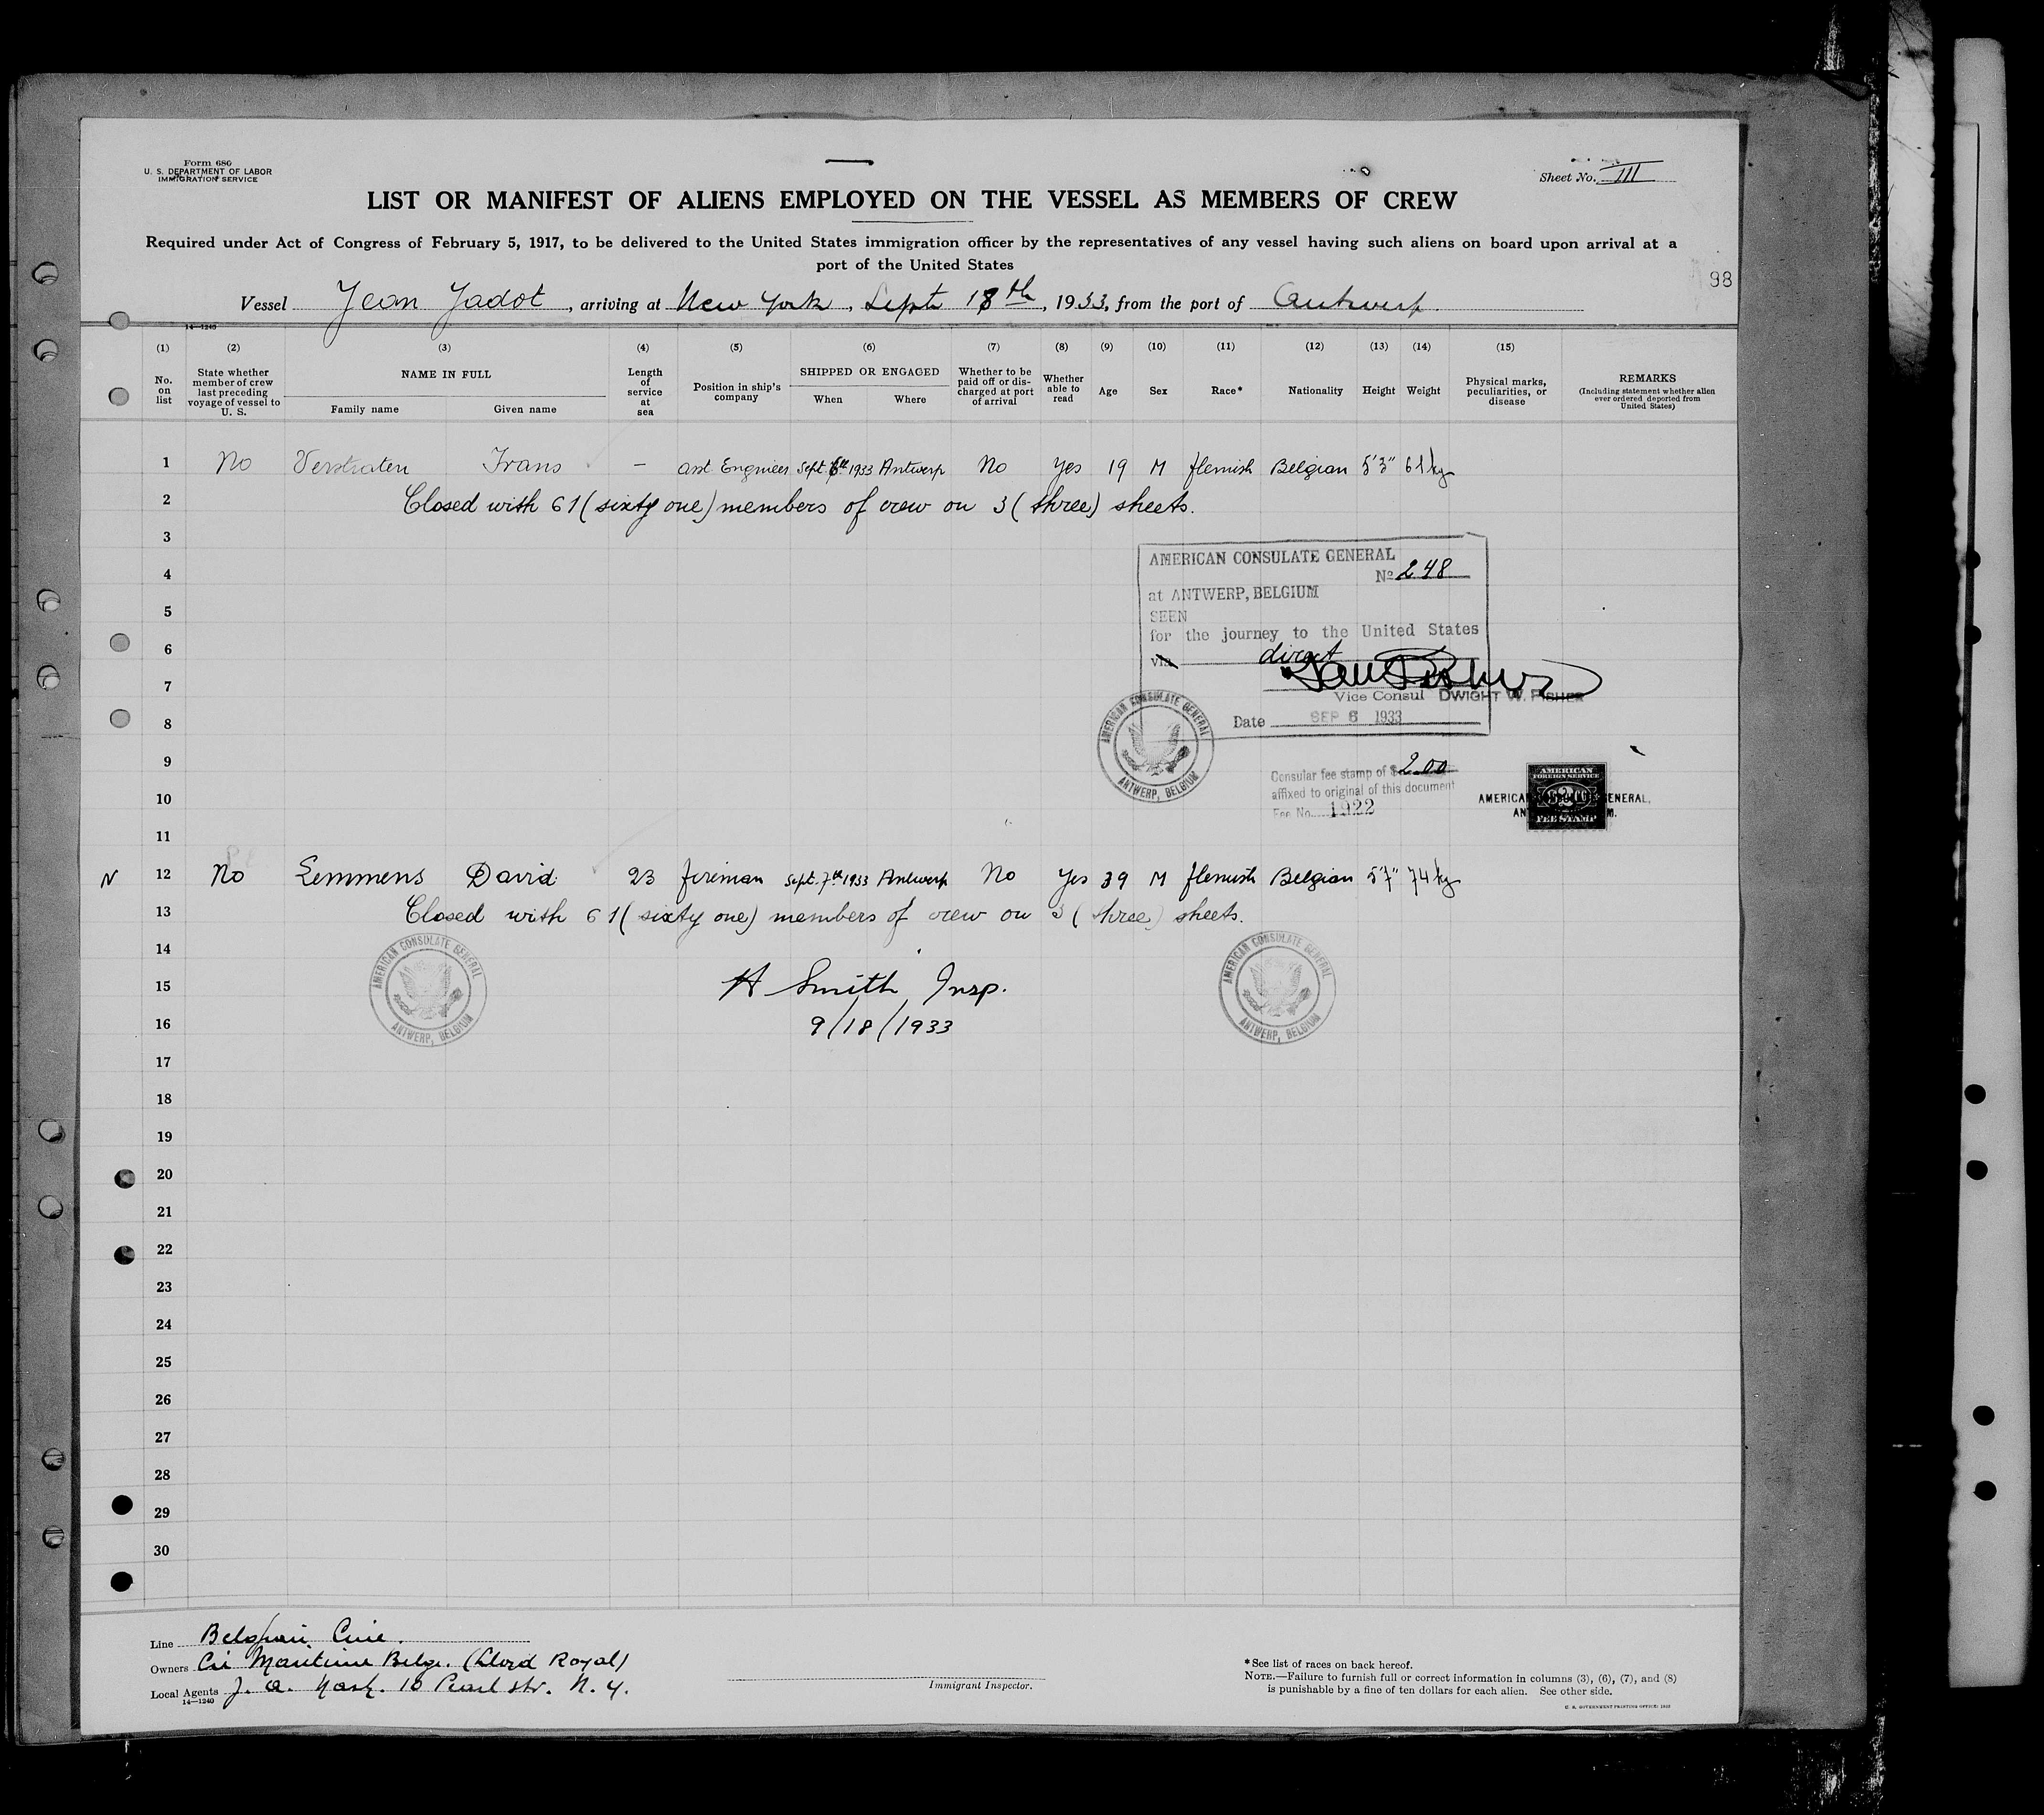 Form 680
U. S. DEPARTMENT OF LABOR
IMMIGRATION SERVICE
Sheet No. III
LIST OR MANIFEST OF ALIENS EMPLOYED ON THE VESSEL AS MEMBERS OF CREW
Required under Act of Congress of February 5, 1917, to be delivered to the United States immigration officer by the representatives of any vessel having such aliens on board upon arrival at a
port of the United States
98
Vessel Jean Jadot, arriving at New York, Sept 18th, 1933, from the port of Antwerp
14—1240
(1) (2) (3) (4) (5) (6) (7) (8) (9) (10) (11) (12) (13) (14) (15)
No. on list
State whether member of crew last preceding voyage of vessel to U. S.
NAME IN FULL
Family name Given name
Length of service at sea
Position in ship's company
SHIPPED OR ENGAGED
When Where
Whether to be paid off or discharged at port of arrival
Whether able to read
Age
Sex
Race*
Nationality
Height
Weight
Physical marks, peculiarities, or disease
REMARKS
(Including statement whether alien ever ordered deported from United States)
1 No Verstraten Frans — asst Engineer Sept 6th 1933 Antwerp No Yes 19 M flemish Belgian 5'3" 61 kg
2 Closed with 61 (sixty one) members of crew on 3 (three) sheets.
3
AMERICAN CONSULATE GENERAL
4
No 248
at ANTWERP, BELGIUM
5
SEEN
for the journey to the United States
6
via direct
7
Vice Consul DWIGHT W. FISHER
8
Date SEP 6 1933
AMERICAN CONSULATE GENERAL
ANTWERP, BELGIUM
9
Consular fee stamp of $2.00
affixed to original of this document
Fee No. 1922
AMERICAN FOREIGN SERVICE
FEE STAMP
10
11
N 12 No Lemmens David 23 fireman Sept. 7th 1933 Antwerp No Yes 39 M flemish Belgian 5'7" 74 kg
13 Closed with 61 (sixty one) members of crew on 3 (three) sheets.
14
AMERICAN CONSULATE GENERAL
ANTWERP, BELGIUM
AMERICAN CONSULATE GENERAL
ANTWERP, BELGIUM
15 H Smith, Insp.
16 9/18/1933
17
18
19
20
21
22
23
24
25
26
27
28
29
30
Line Belgian Line.
Owners Cie Maritime Belge. (Lloyd Royal)
Local Agents J. A. 10 Pearl str. N. Y.
14—1240
Immigrant Inspector.
*See list of races on back hereof.
NOTE.—Failure to furnish full or correct information in columns (3), (6), (7), and (8)
is punishable by a fine of ten dollars for each alien. See other side.